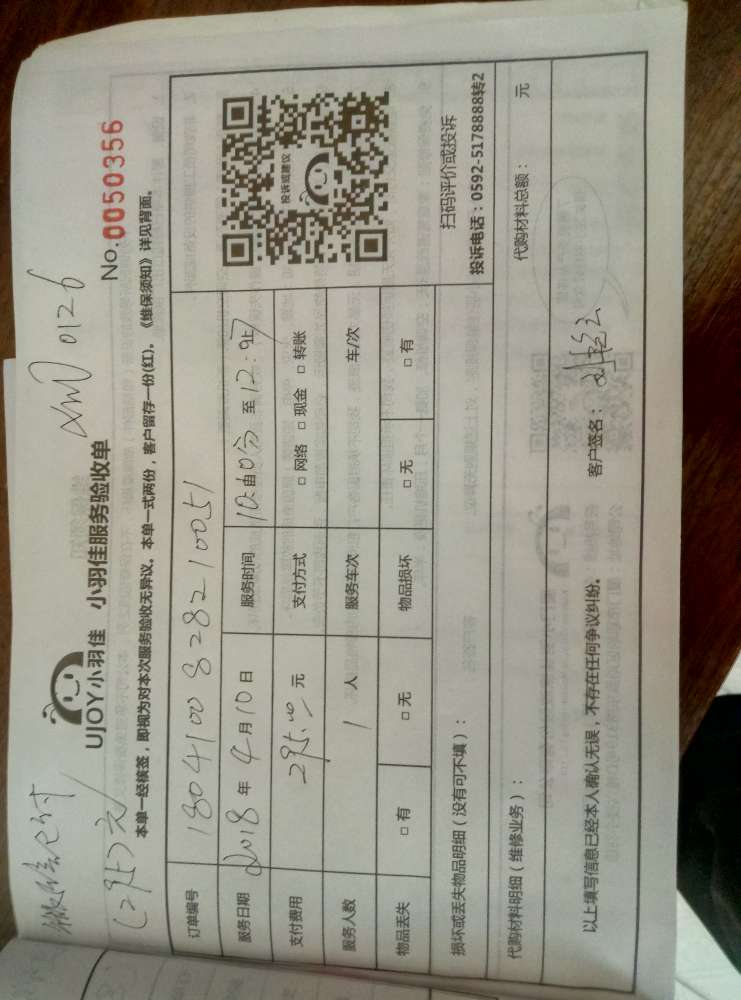 微信已付
(295元)
XMD 0126
UJOY小羽佳 小羽佳服务验收单
No.0050356
本单一经核签，即视为对本次服务验收无异议。本单一式两份，客户留存一份(红)。《维保须知》详见背面。
订单编号 1804100828210051
服务日期 2018 年 4 月 10 日 服务时间 至 12:
支付费用 295.00 元 支付方式 □ 网络 □ 现金 □ 转账
服务人数 1 人 服务车次 车/次
物品丢失 □ 有 □ 无 物品损坏 □ 无 □ 有
投诉或建议
扫码评价或投诉
投诉电话：0592-5178888转2
损坏或丢失物品明细（没有可不填）：
代购材料明细（维修业务）： 代购材料总额： 元
以上填写信息已经本人确认无误，不存在任何争议纠纷。 客户签名：